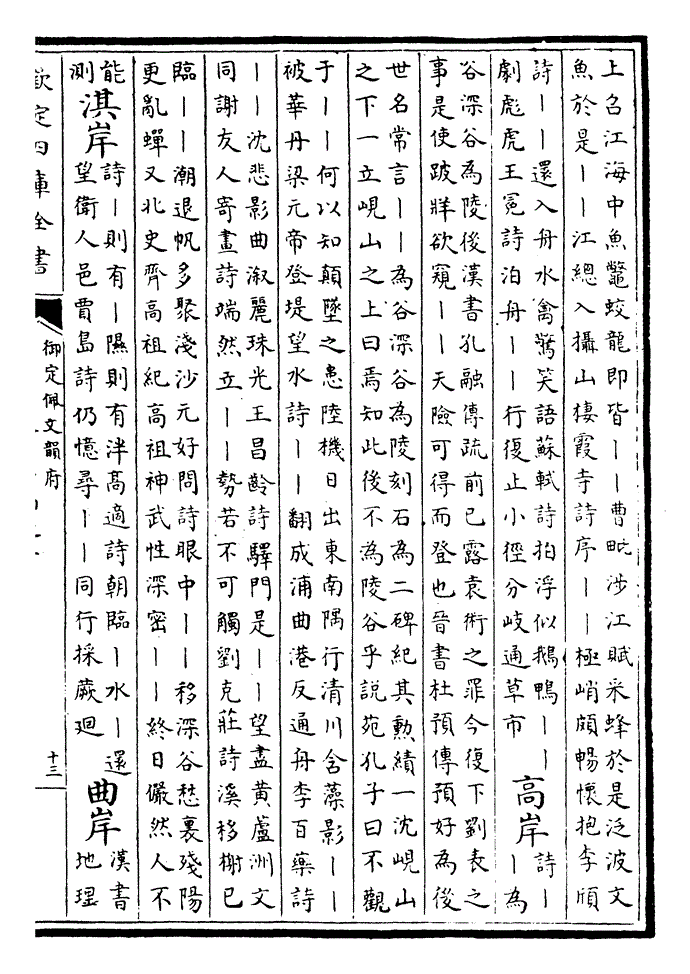 上刍江海中魚鼈蛟龍即皆——曹毗涉江賦采蜂於是泛波文
魚於是——江總入攝山棲霞寺詩序——極峭頗暢懷抱李頎
詩——還入舟水禽驚笑語蘇軾詩拍浮似鵝鴨——
劇彪虎王冕詩泊舟——行復止小徑分岐通草市
高岸
詩—
—為
谷深谷為陵後漢書孔融傳疏前已露袁術之罪今復下劉表之
事是使跛牂欲窺——天險可得而登也晉書杜預傳預好為後
世名常言——為谷深谷為陵刻石為二碑紀其勲績一沈峴山
之下一立峴山之上曰焉知此後不為陵谷乎說苑孔子曰不觀
于——何以知顛墜之患陸機日出東南隅行清川含藻影——
被華丹梁元帝登堤望水詩——翻成浦曲港反通舟李百藥詩
——沈悲影曲溆麗珠光王昌齡詩驛門是——望盡黃盧洲文
同謝友人寄畫詩瑞然立——勢若不可觸劉克莊詩溪移榭已
臨——潮退帆多聚淺沙元好問詩眼中——移深谷愁裏殘陽
更亂蟬又北史齊高祖紀高祖神武性深密——終日儼然人不
能
測
淇岸
詩—則有—隰則有泮高適詩朝臨—水—還
望衛人邑賈島詩仍憶尋——同行採蕨廻
曲岸
漢書
地理
欽定四庫全書
御定佩文韻府
十三